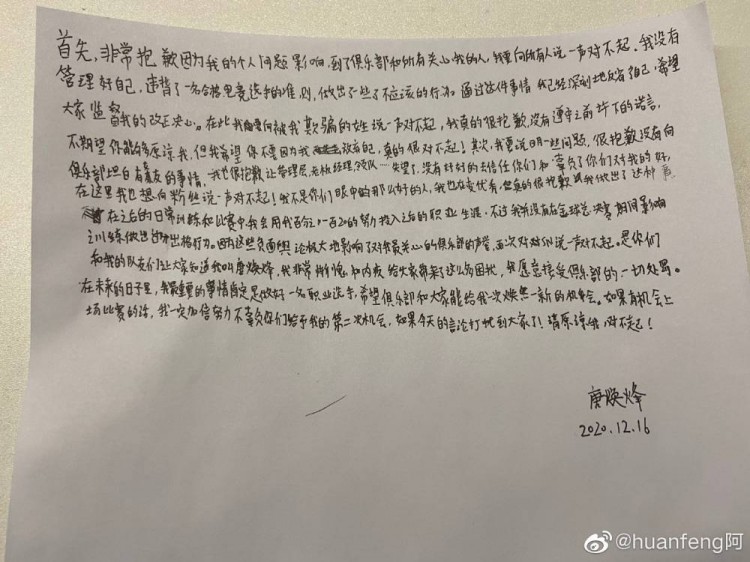 首先，非常抱歉因为我的个人问题影响到了俱乐部和所有关心我的人，我要向所有人说一声对不起。我没有
管理好自己，违背了一名合格电竞选手的准则，做出了一些不应该的行为。通过这件事情我已经深刻地反省自己，希望
大家监督我的改正决心。在此我要向被我欺骗的女生说一声对不起，我真的很抱歉，没有遵守之前许下的诺言，
不期望你能够原谅我，但我希望你不要因为我
俱乐部坦白真实的事情，我也很抱歉让管理层、老板经理、领队……失望了，没有好好的去信任你们和辜负了你们对我的好，
在这里我也想向粉丝说一声对不起！我不是你们眼中的那么好的人，
在之后的日常训练和比赛中我会用我百分之一百二的努力投入之后的职业生涯。不过我并没有在全球总决赛期间影响
训练做出出格行为。因为这些负面舆论极大地影响了对我最关心的俱乐部的声誉，再次对你们说一声对不起。是你们
和我的队友们让大家知道我叫唐焕烽，我非常惭愧和内疚给大家带来了这么多困扰，我愿意接受俱乐部的一切处罚。
在未来的日子里，我最重要的事情肯定是做好一名职业选手，希望俱乐部和大家能给我一次焕然一新的机会。如果有机会上
场比赛的话，我一定加倍努力不辜负你们给予我的第二次机会，如果今天的言论打扰到大家了！请原谅我，对不起！
唐焕烽
2020.12.16
@huanfeng阿